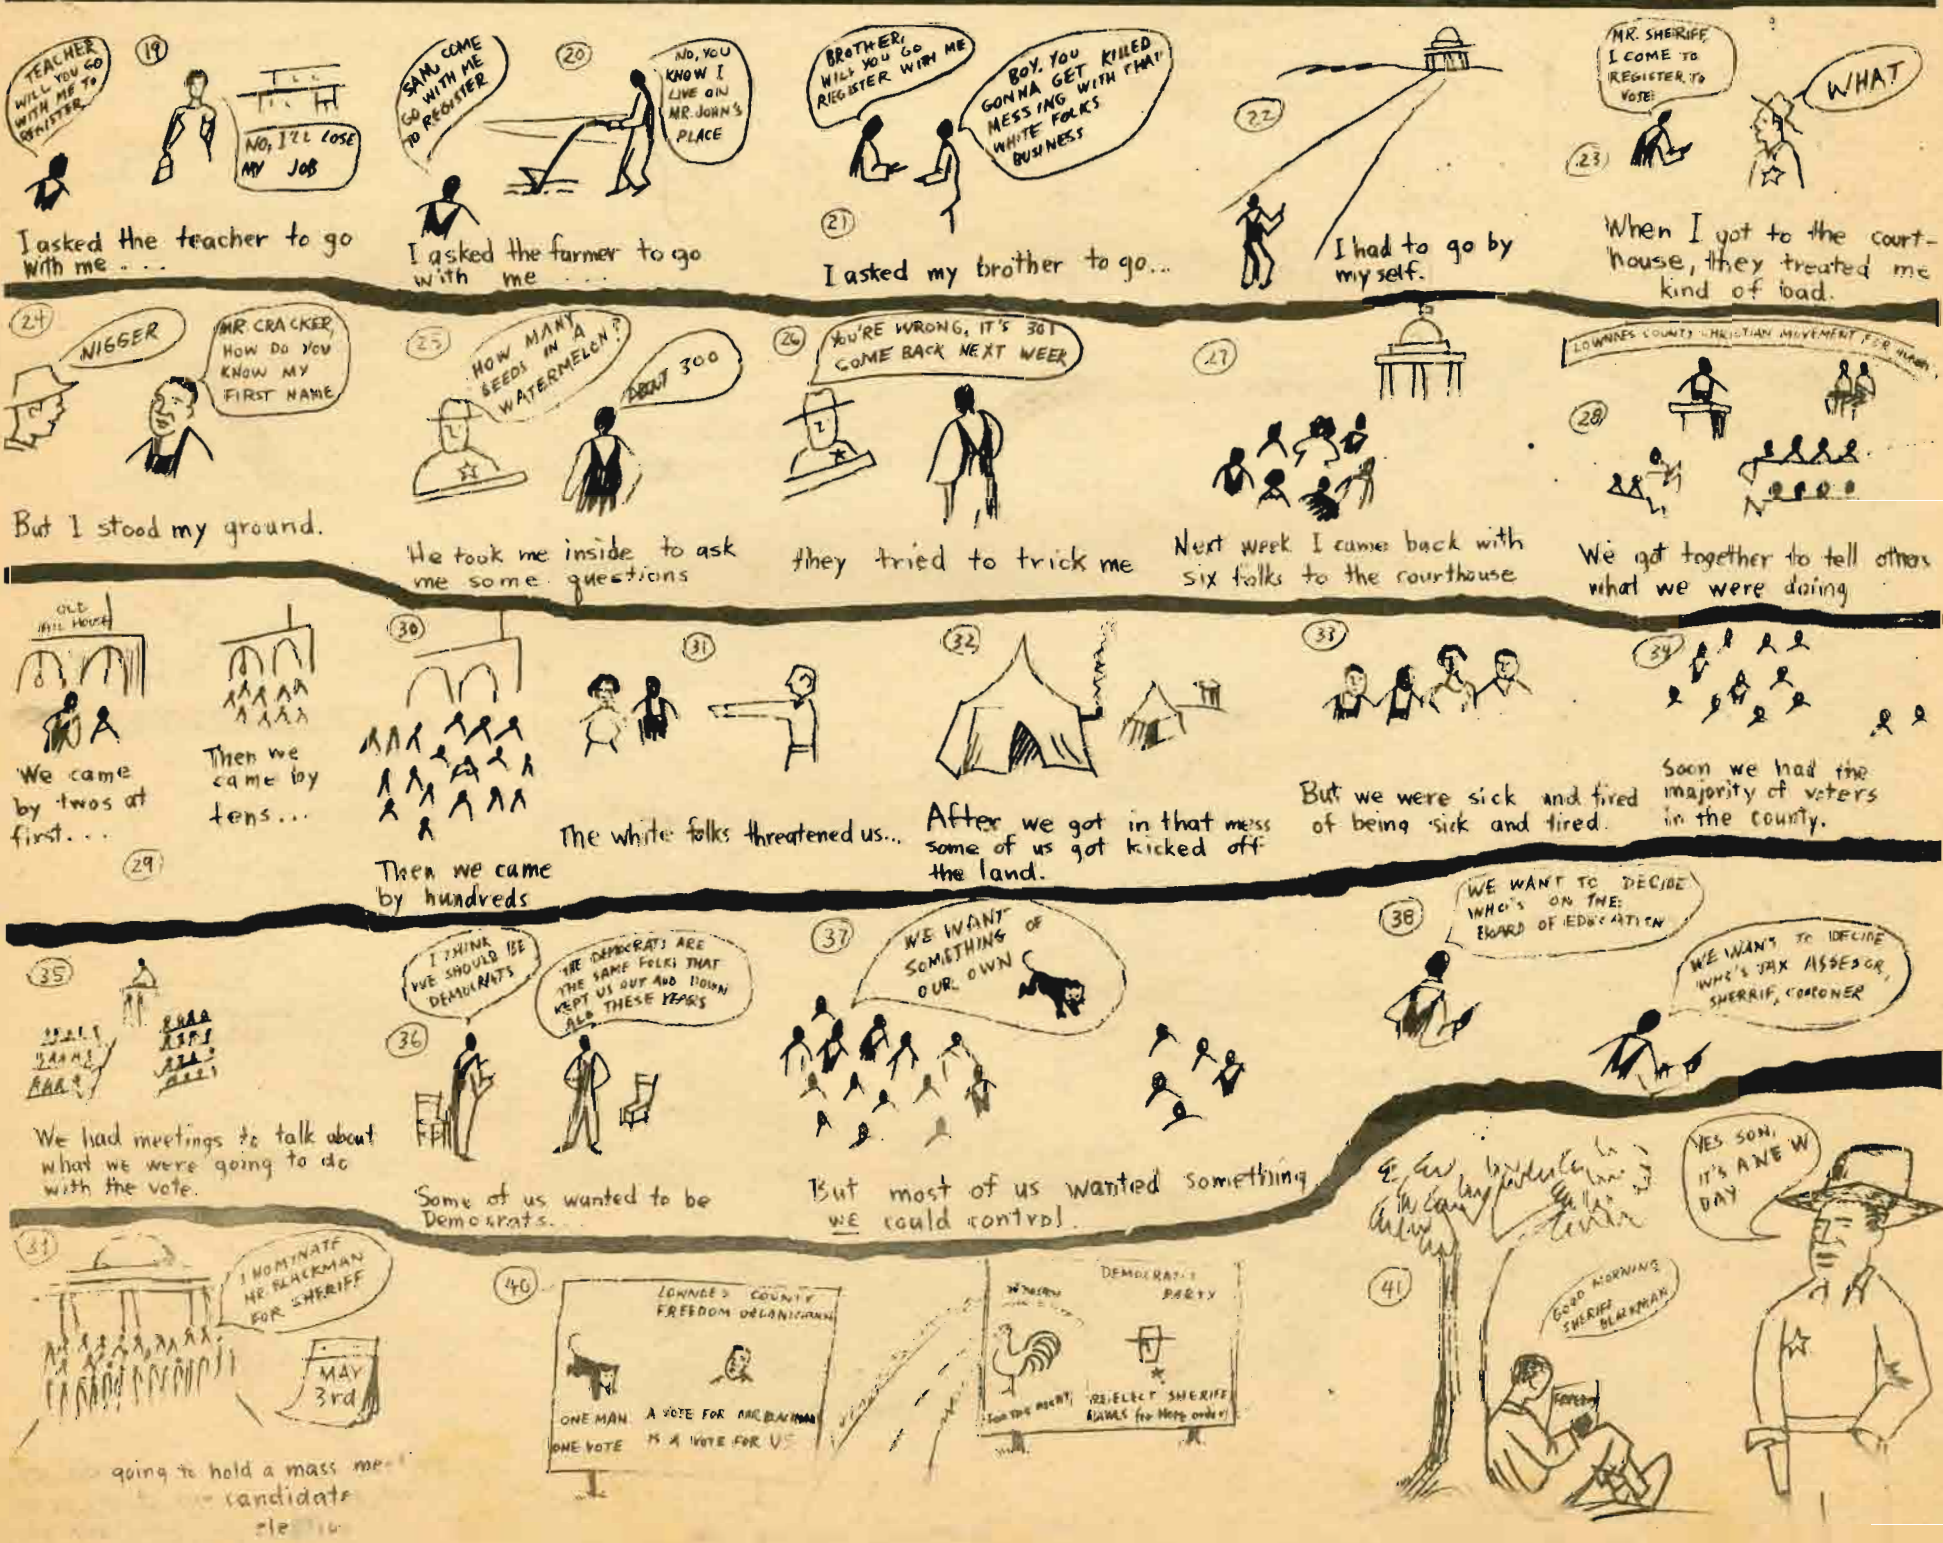 TEACHER
WILL YOU GO
WITH ME TO
REGISTER
19
NO, I'LL LOSE
MY JOB
I asked the teacher to go
with me . . .
SAM, COME
GO WITH ME
TO REGISTER
20
NO, YOU
KNOW I
LIVE ON
MR. JOHN'S
PLACE
I asked the farmer to go
with me ...
BROTHER,
WILL YOU GO
REGISTER WITH ME
BOY, YOU
GONNA GET KILLED
MESSING WITH THAT
WHITE FOLKS
BUSINESS
21
I asked my brother to go...
22
I had to go by
my self.
MR. SHERIFF,
I COME TO
REGISTER TO
VOTE
WHAT
23
When I got to the court-
house, they treated me
kind of bad.
24
NIGGER
MR. CRACKER,
HOW DO YOU
KNOW MY
FIRST NAME
But I stood my ground.
25
HOW MANY
SEEDS IN A
WATERMELON?
ABOUT 300
He took me inside to ask
me some questions
26
YOU'RE WRONG, IT'S 301
COME BACK NEXT WEEK
they tried to trick me
27
Next week I came back with
six folks to the courthouse
LOWNDES COUNTY CHRISTIAN MOVEMENT FOR HUMAN
28
We got together to tell others
what we were doing
OLD
JAIL HOUSE
We came
by twos at
first. . .
29
Then we
came by
tens...
30
Then we came
by hundreds
31
The white folks threatened us...
32
After we got in that mess
some of us got kicked off
the land.
33
But we were sick and tired
of being sick and tired.
34
Soon we had the
majority of voters
in the county.
35
We had meetings to talk about
what we were going to do
with the vote.
I THINK
WE SHOULD BE
DEMOCRATS
THE DEMOCRATS ARE
THE SAME FOLKS THAT
KEPT US OUT AND DOWN
ALL THESE YEARS
36
Some of us wanted to be
Democrats...
37
WE WANT
SOMETHING OF
OUR OWN
But most of us wanted something
WE could control.
38
WE WANT TO DECIDE
WHO'S ON THE
BOARD OF EDUCATION
WE WANT TO DECIDE
WHO'S TAX ASSESOR,
SHERRIF, CORONER
39
I NOMINATE
MR. BLACKMAN
FOR SHERIFF
MAY
3rd
going to hold a mass
candidate
40
LOWNDES COUNTY
FREEDOM ORGANIZATION
ONE MAN
ONE VOTE
A VOTE FOR MR BLACKMAN
IS A VOTE FOR US
DEMOCRATIC
PARTY
FOR THE RIGHT
RE-ELECT SHERIFF
for More order
41
GOOD MORNING
SHERIFF
BLACKMAN
YES SON,
IT'S A NEW
DAY